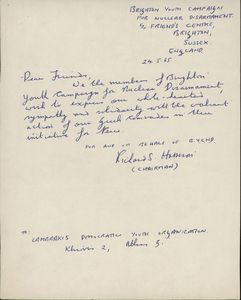 BRIGHTON YOUTH CAMPAIGN
FOR NUCLEAR DISARMAMENT.
C/O FRIEND'S CENTRE,
BRIGHTON,
SUSSEX.
ENGLAND.
24.5.65
Dear Friends,
We the members of Brighton
Youth Campaign for Nuclear Disarmament
wish to express our whole-hearted
sympathy and solidarity with the valiant
action of our Greek comrades in their
initiative for Peace.
FOR AND ON BEHALF OF B.Y.C.N.D.
Richard S.
(CHAIRMAN)
TO:
LAMBRAKIS DEMOCRATIC YOUTH ORGANIZATION.
2, Athens